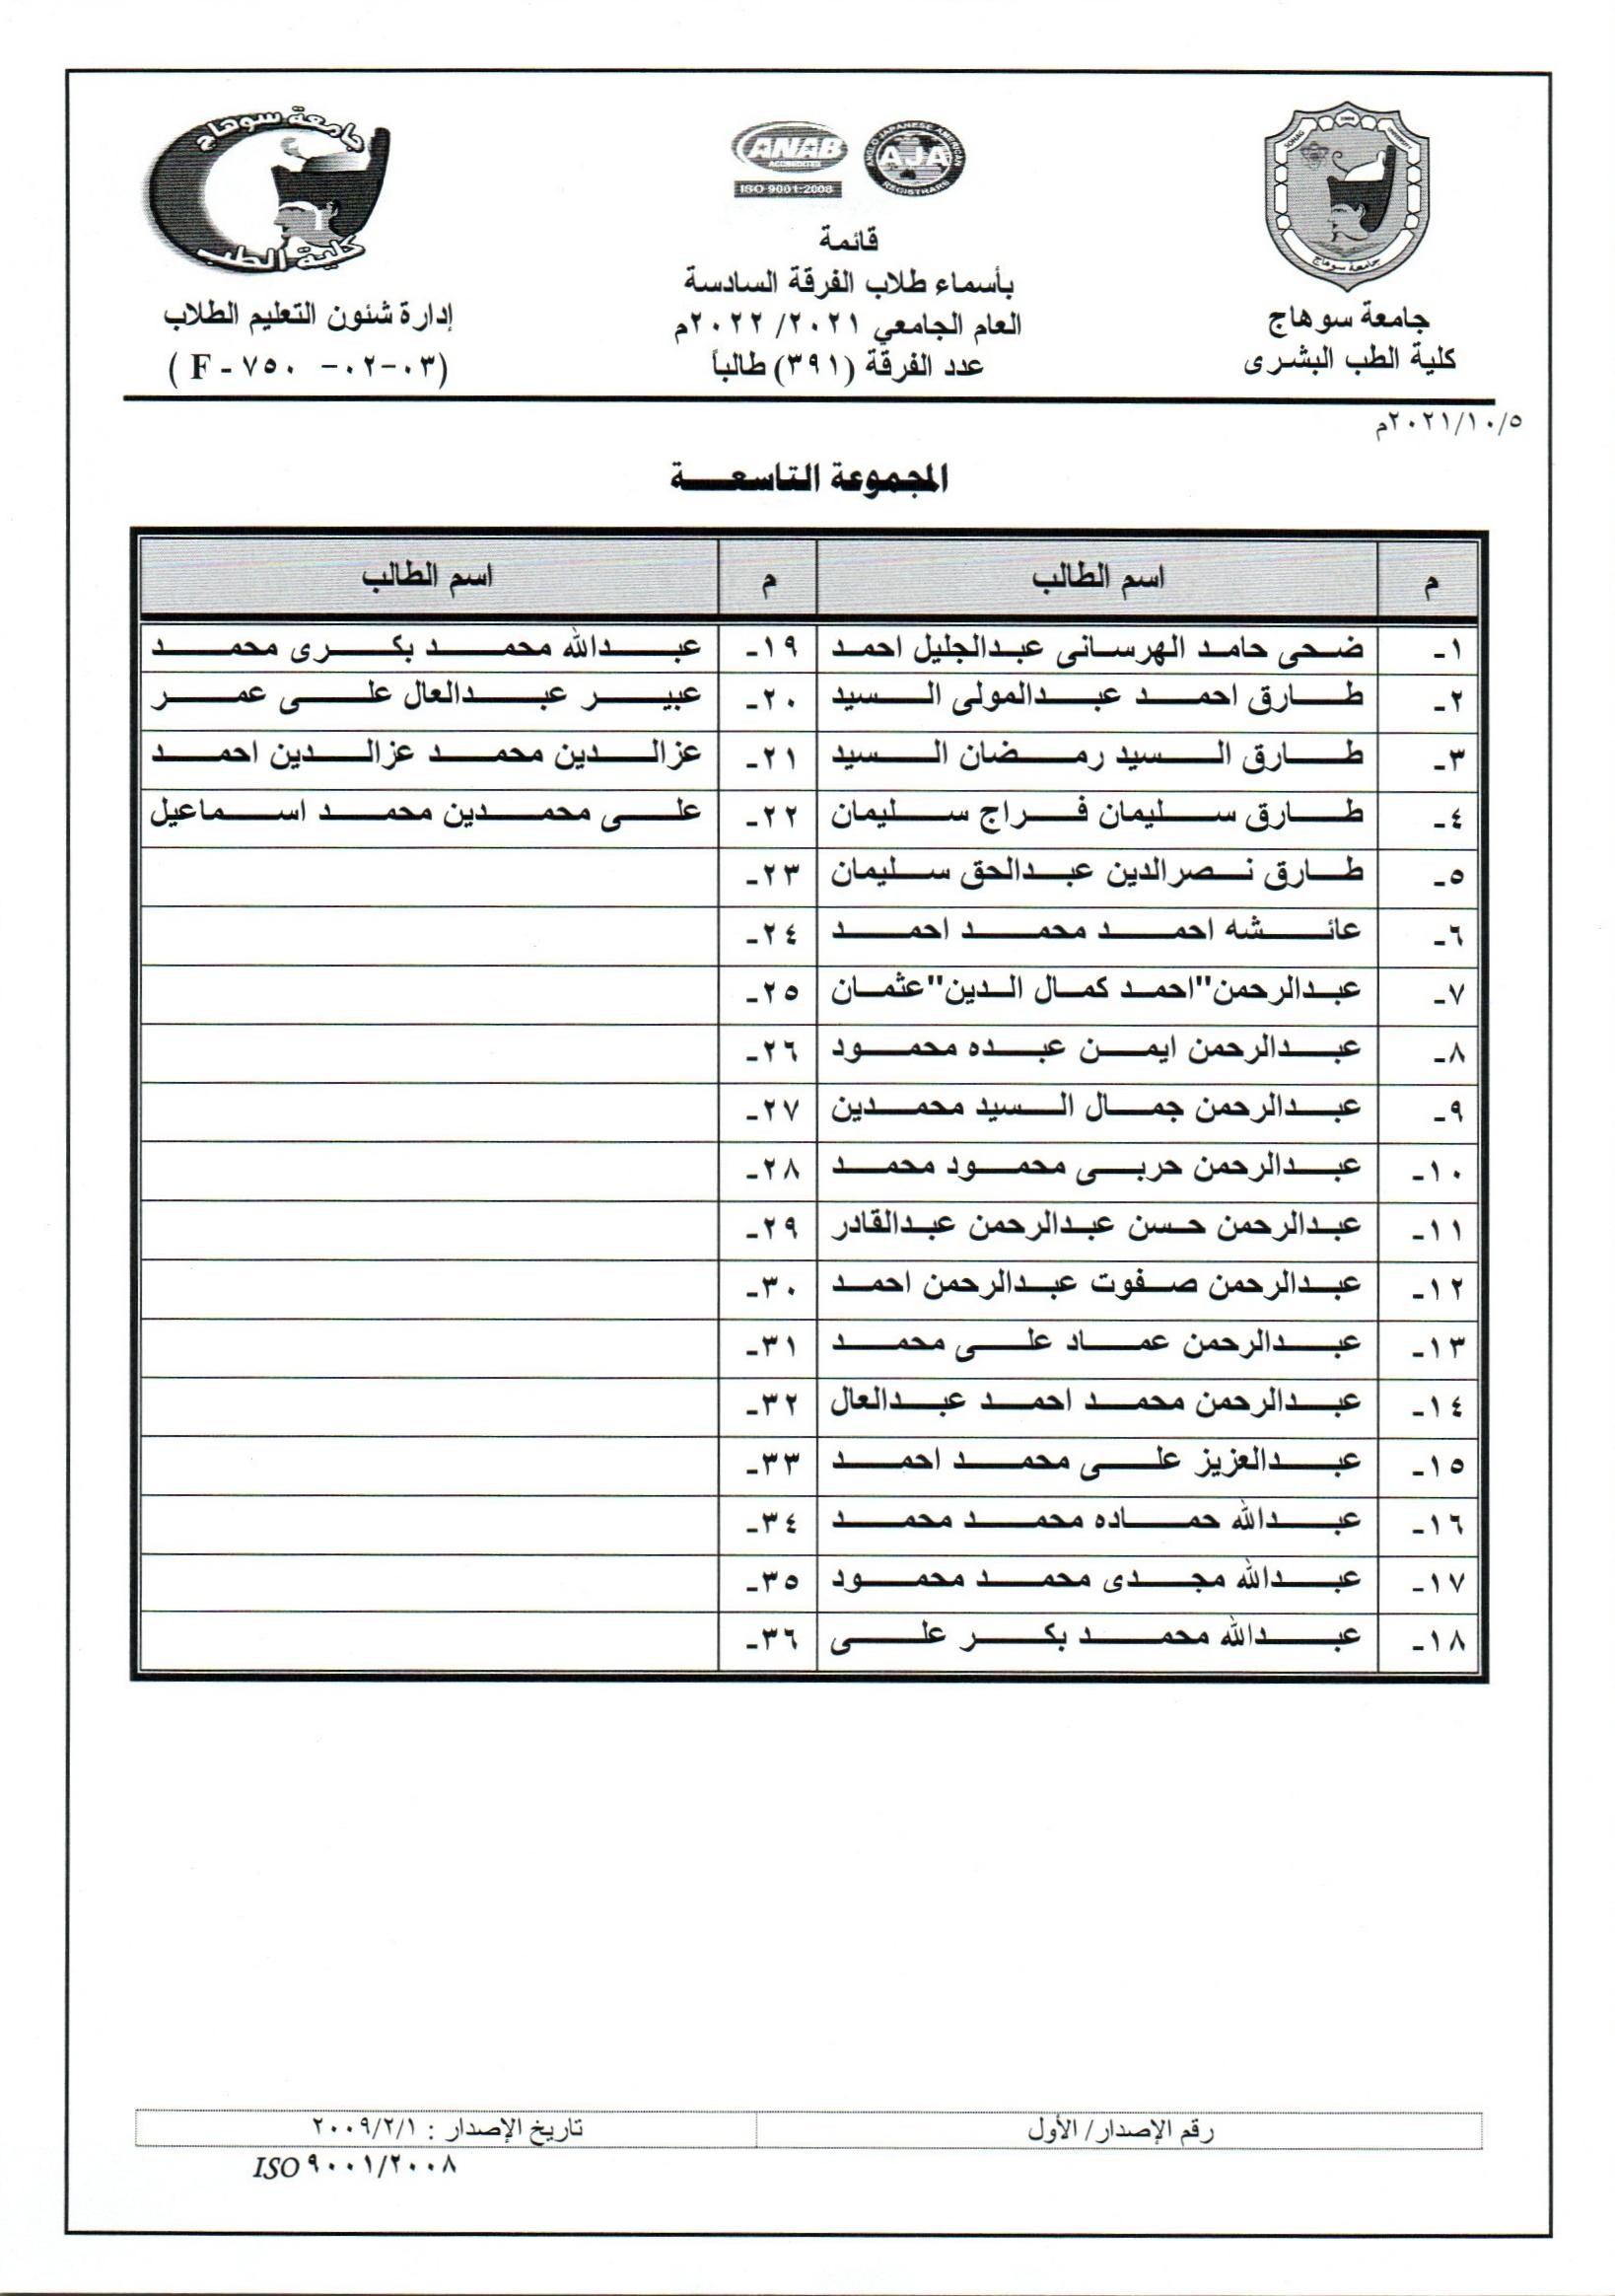 جامعة سوهاج
كلية الطب البشرى
SOHAG UNIVERSITY
جامعة سوهاج
ANAB
ACCREDITED
ISO 9001:2008
ANGLO JAPANESE AMERICAN
AJA
REGISTRARS
قائمة
بأسماء طلاب الفرقة السادسة
العام الجامعي ٢٠٢١/ ٢٠٢٢م
عدد الفرقة (٣٩١) طالباً
جامعة سوهاج
كلية الطب
إدارة شئون التعليم الطلاب
(٠٣-٠٢- ٧٥٠ - F )
٢٠٢١/١٠/٥م
المجموعة التاسعة
م اسم الطالب م اسم الطالب
١- ضحى حامد الهرسانى عبدالجليل احمد ١٩- عبدالله محمد بكرى محمد
٢- طارق احمد عبدالمولى السيد ٢٠- عبير عبدالعال على عمر
٣- طارق السيد رمضان السيد ٢١- عزالدين محمد عزالدين احمد
٤- طارق سليمان فراج سليمان ٢٢- على محمدين محمد اسماعيل
٥- طارق نصرالدين عبدالحق سليمان ٢٣-
٦- عائشه احمد محمد احمد ٢٤-
٧- عبدالرحمن"احمد كمال الدين"عثمان ٢٥-
٨- عبدالرحمن ايمن عبده محمود ٢٦-
٩- عبدالرحمن جمال السيد محمدين ٢٧-
١٠- عبدالرحمن حربى محمود محمد ٢٨-
١١- عبدالرحمن حسن عبدالرحمن عبدالقادر ٢٩-
١٢- عبدالرحمن صفوت عبدالرحمن احمد ٣٠-
١٣- عبدالرحمن عماد على محمد ٣١-
١٤- عبدالرحمن محمد احمد عبدالعال ٣٢-
١٥- عبدالعزيز على محمد احمد ٣٣-
١٦- عبدالله حماده محمد محمد ٣٤-
١٧- عبدالله مجدى محمد محمود ٣٥-
١٨- عبدالله محمد بكر على ٣٦-
رقم الإصدار/ الأول تاريخ الإصدار : ٢٠٠٩/٢/١
ISO ٩٠٠١/٢٠٠٨